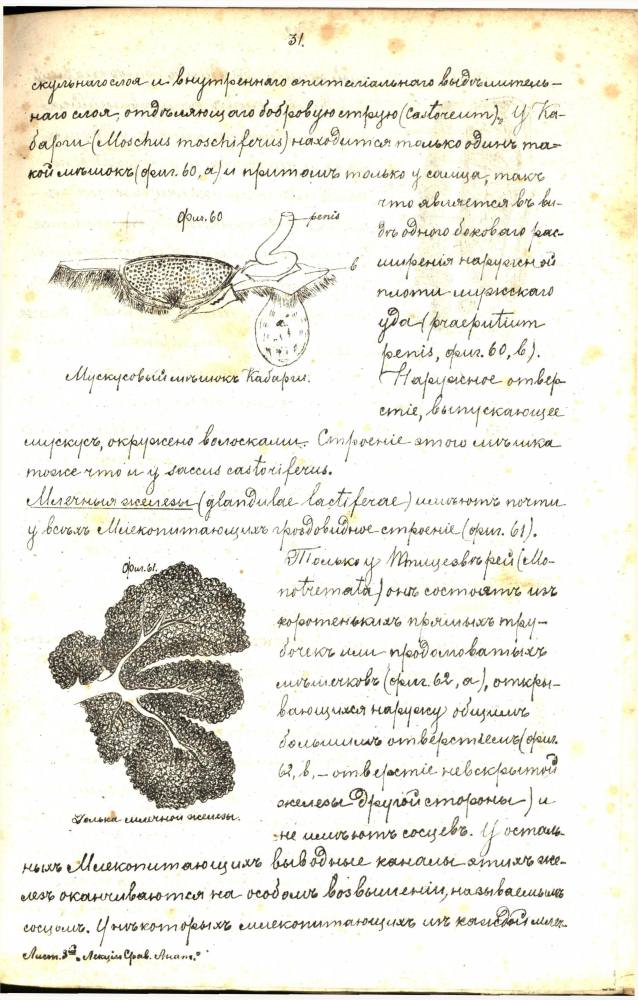 31.
скульнаго слоя и внутренняго эпителіальнаго выдѣлитель-
наго слоя, отдѣляющаго бобровую струю (castoreum). У Ка-
барги (Moschus moschiferus) находится только одинъ та-
кой мѣшокъ (фиг. 60, а) и притомъ только у самца, такъ
что является въ ви-
дѣ одного боковаго рас-
ширенія наружной
плоти мужскаго
уда (praeputium
penis, фиг. 60, b).
Наружное отвер-
стіе, выпускающее
фиг. 60
penis
b
Мускусовый мѣшокъ Кабарги.
мускусъ, окружено волосками. Строеніе этого мѣшка
тоже что и у saccus castoriferus.
Млечныя железы (glandulae lactiferae) имѣютъ почти
у всѣхъ Млекопитающихъ гроздовидное строеніе (фиг. 61).
Только у Птицезвѣрей (Mo-
notremata) онѣ состоятъ изъ
коротенькихъ прямыхъ тру-
бочекъ или продолговатыхъ
мѣшечковъ (фиг. 62, а), откры-
вающихся наружу общимъ
большимъ отверстіемъ (фиг.
62, b, - отверстіе невскрытой
железы другой стороны) и
не имѣютъ сосцевъ. У осталь-
фиг. 61.
Долька млечной железы.
ныхъ Млекопитающихъ выводные каналы этихъ же-
лезъ оканчиваются на особомъ возвышеніи, называемымъ
сосцомъ. У нѣкоторыхъ млекопитающихъ изъ каждой млеч-
Лист. 3й „Лекціи Срав. Анат."